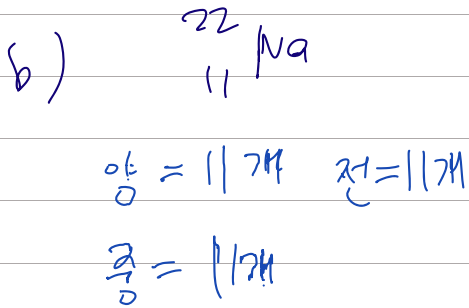 b) ²²₁₁Na
양 = 11개 전=11개
중 = 11개